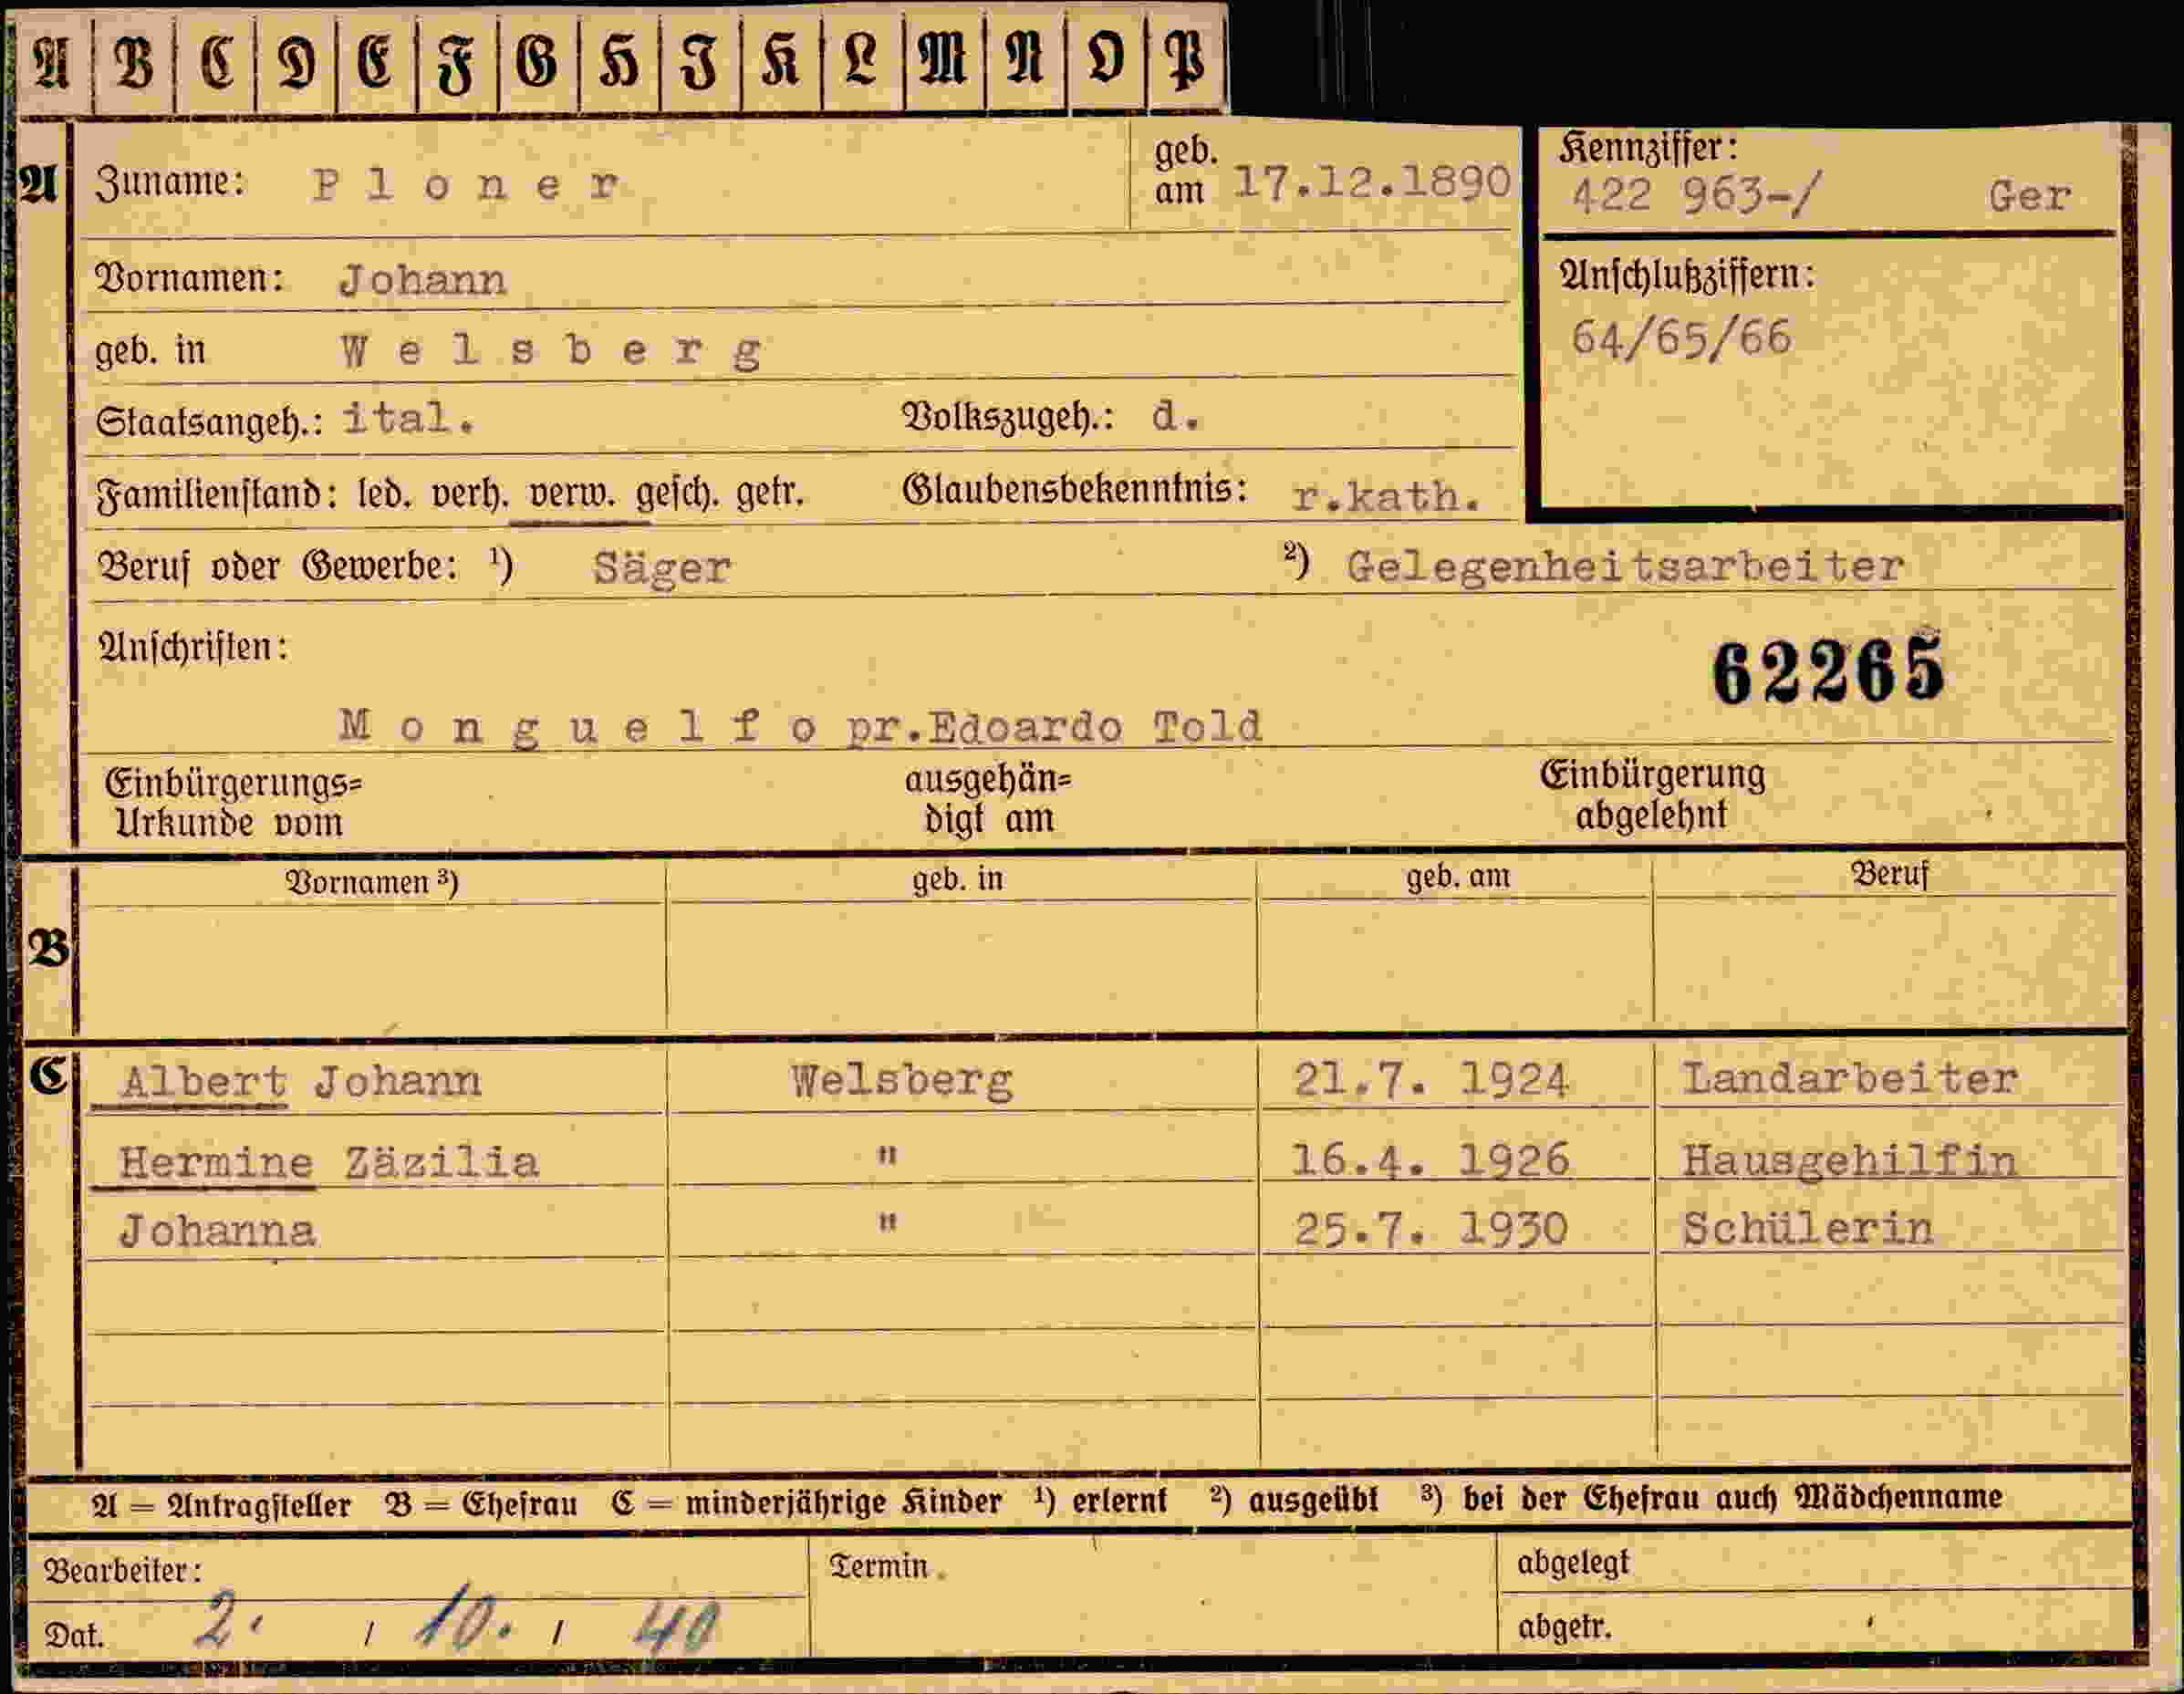 A B C D E F G H I K L M N O P
A Zuname: Ploner geb. am 17.12.1890
Kennziffer:
422 963-/ Ger
Vornamen: Johann
Anschlußziffern:
64/65/66
geb. in Welsberg
Staatsangeh.: ital. Volkszugeh.: d.
Familienstand: led. verh. verw. gesch. getr. Glaubensbekenntnis: r.kath.
Beruf oder Gewerbe: ¹) Säger ²) Gelegenheitsarbeiter
Anschriften:
62265
Monguelfo pr.Edoardo Told
Einbürgerungs= ausgehän= Einbürgerung
Urkunde vom digt am abgelehnt
B Vornamen ³) geb. in geb. am Beruf
C Albert Johann Welsberg 21.7. 1924 Landarbeiter
Hermine Zäzilia " 16.4. 1926 Hausgehilfin
Johanna " 25.7. 1930 Schülerin
A = Antragsteller B = Ehefrau C = minderjährige Kinder ¹) erlernt ²) ausgeübt ³) bei der Ehefrau auch Mädchenname
Bearbeiter: Termin abgelegt
Dat. 2. / 10. / 40 abgetr.